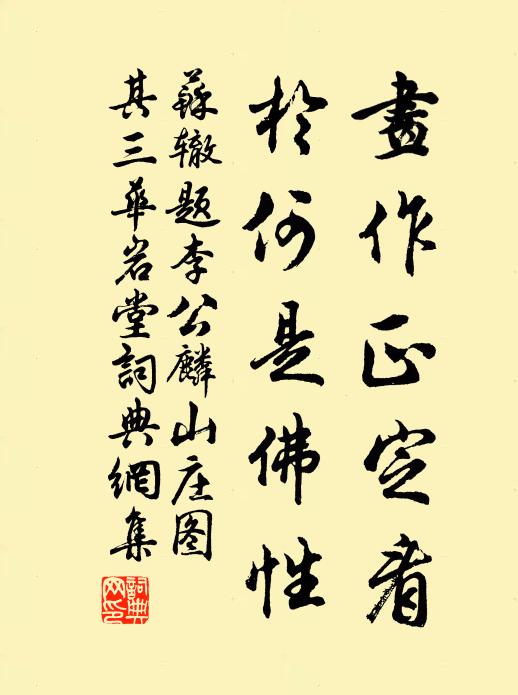 畫作正定看
於何是佛性
蘇辙题李公麟山庄图
其三華岩堂詞典網集
詞典
网印